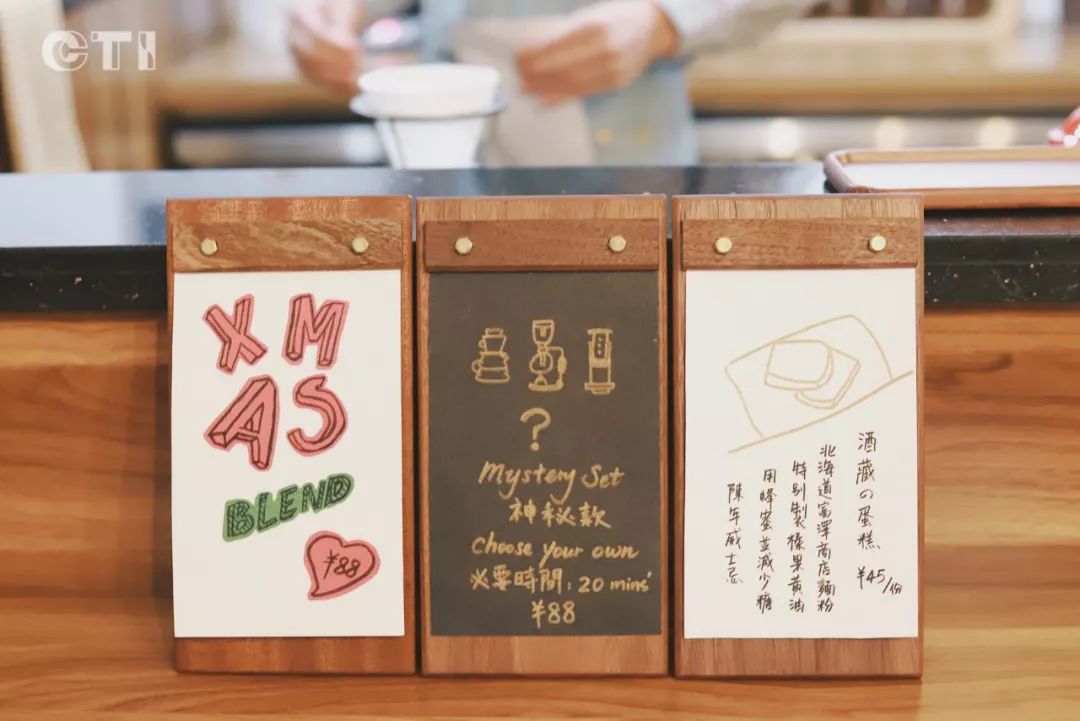 CTI
XM
AS
BLEND
¥88
?
Mystery Set
神秘款
Choose your own
必要時間：20 mins'
¥88
酒藏の蛋糕 ¥45/份
北海道富澤商店麵粉
特别製榛果黄油
用蜂蜜並減少糖
陳年威士忌